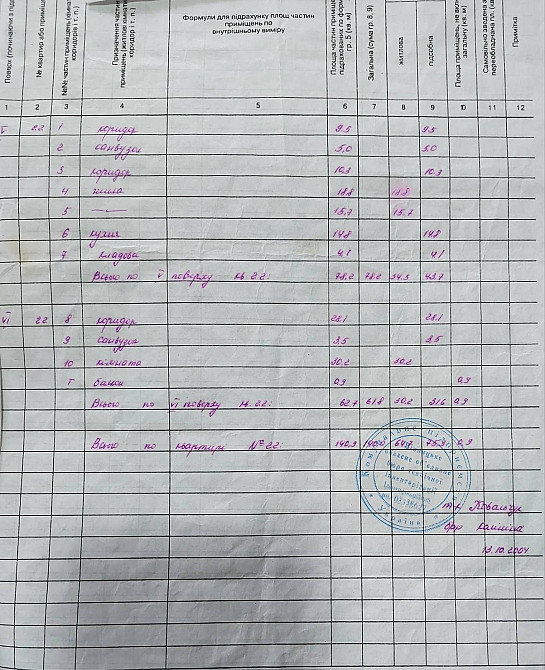 Поверх (починаючи з підв
№ квартир або приміще
№№ частин приміщень (кімнат, коридорів і т. п.)
Призначення частин приміщень (житлові кімнати, коридор і т. п.)
Формули для підрахунку площ частин приміщень по внутрішньому виміру
Площа частин приміщень підрахованих по формулах гр. 5 (кв. м)
Загальна (сума гр. 8, 9)
житлова
підсобна
Площа приміщень, не включ загальну (кв. м)
Самовільно зведена або переобладнана пл. (кв
Примітка
1 2 3 4 5 6 7 8 9 10 11 12
V 22 1 коридор 9.5 9.5
2 санвузол 5,0 5.0
3 коридор 10.3 10.3
4 житла 18.8 18.8
5 — 15.7 15.7
6 кухня 14.8 14.8
7 кладова 4.1 4.1
Всього по V поверху кв. 22: 78.2 78.2 34.5 43.7
VI 22 8 коридор 28.1 28.1
9 санвузол 3.5 3.5
10 кімната 30.2 30.2
Т балкон 0,9 0,9
Всього по VI поверху кв. 22: 62.7 61.8 30.2 31.6 0,9
Всього по квартирі № 22: 140,9 140.0 64.7 75.3 0,9
Комунальне підприємство
обласне об'єднане
бюро технічної
інвентаризації
Україна
Ковальчук
13.10.2004